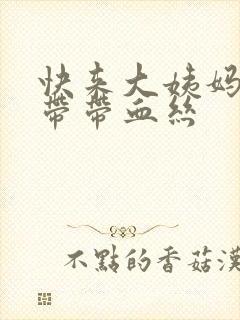 快来大姨妈
带带血丝
不點的香菇漢